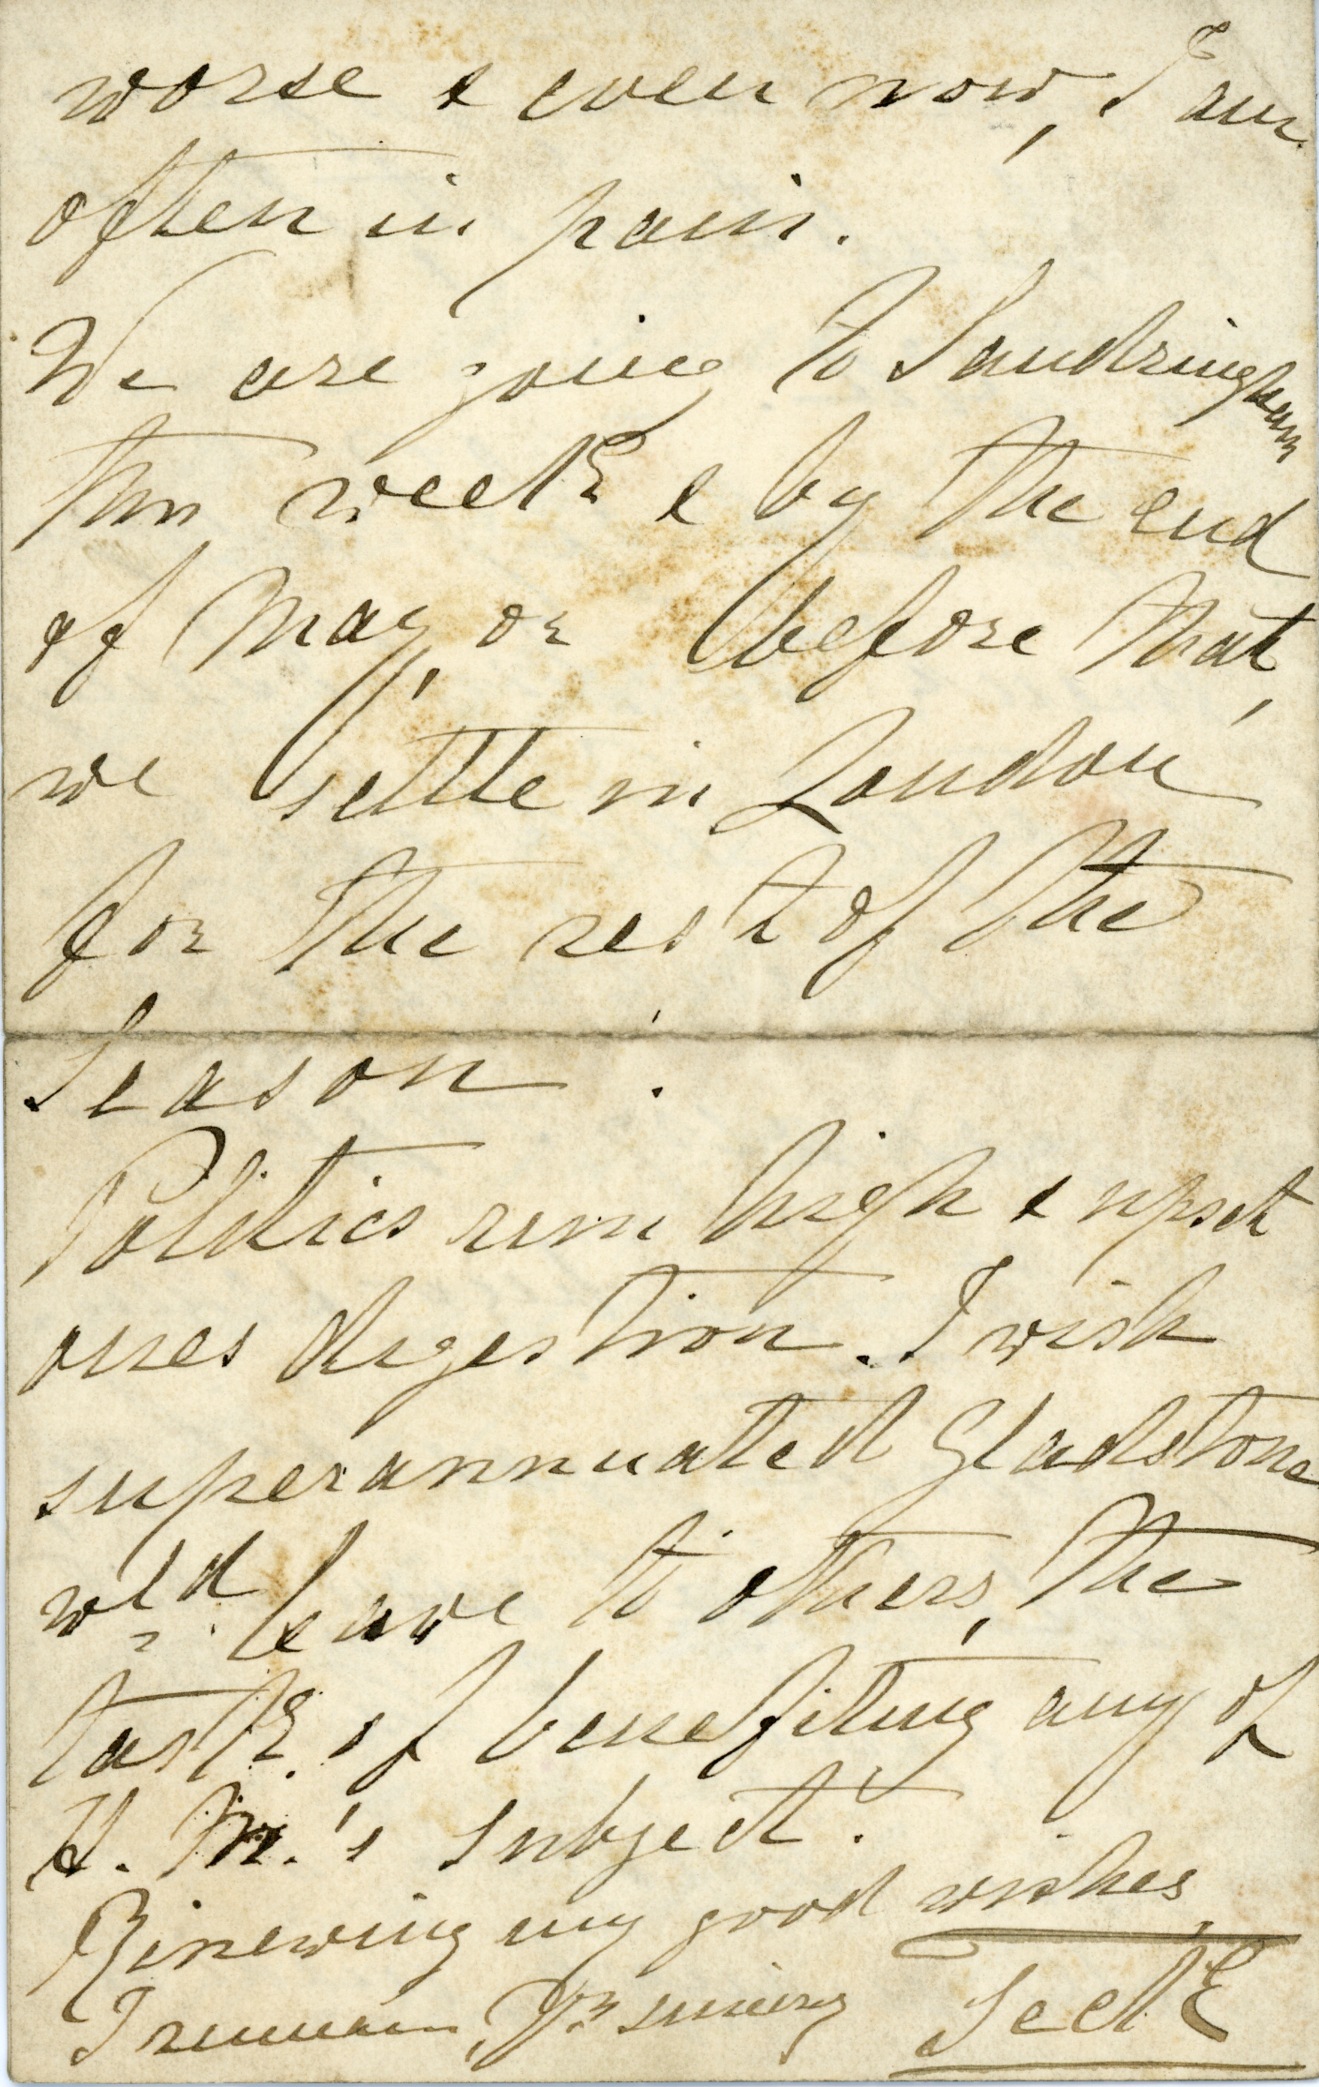 worse & even now, I am
often in pain.
We are going to Sandringham
this week & by the end
of May, or before that,
we settle in London
for the rest of the
Season.
Politics run high & upset
ones digestion. I wish
superannuated Gladstone
wld. leave to others, the
task of benefiting any of
H. M.'s subject.
Renewing my good wishes,
I remain, Yrs
Teck